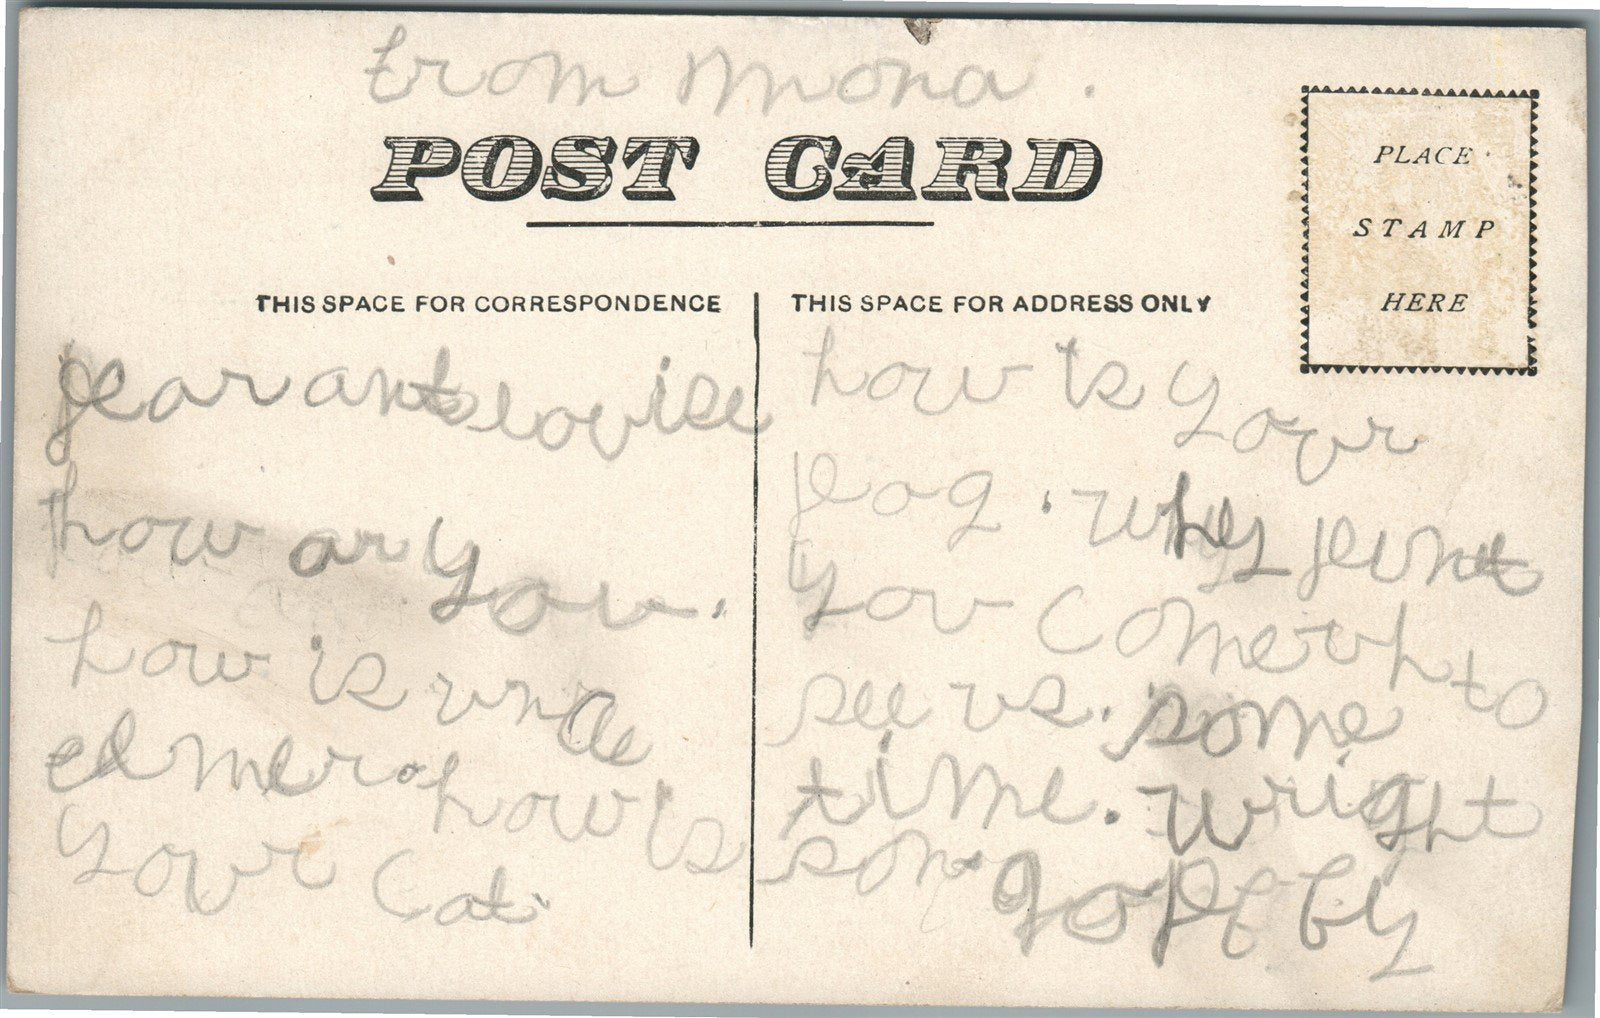 from Mona.
POST CARD
PLACE
STAMP
HERE
THIS SPACE FOR CORRESPONDENCE
dear ant lovise
how ar you.
how is uncle
elmer. how is
your Cat.
THIS SPACE FOR ADDRESS ONLY
how is your
dog. why dent
you come to
see us. some
time. wright
son.